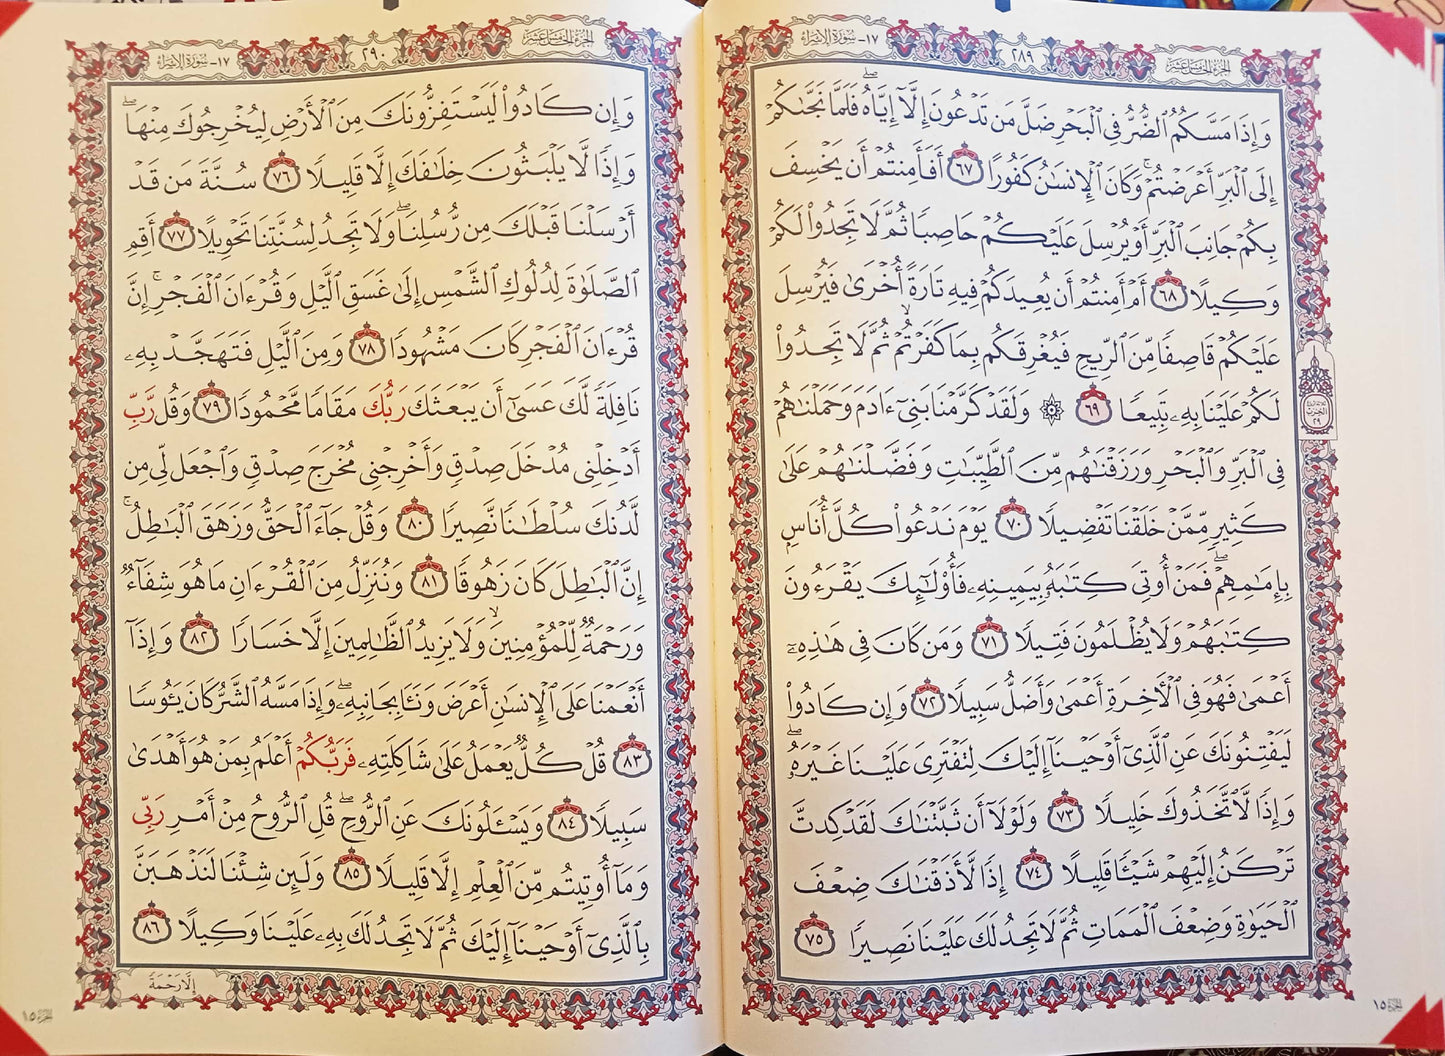 الجزء الخامس عشر
٢٨٩
١٧- سورة الإسراء
وَإِذَا مَسَّكُمُ ٱلضُّرُّ فِى ٱلْبَحْرِ ضَلَّ مَن تَدْعُونَ إِلَّآ إِيَّاهُ ۖ فَلَمَّا نَجَّىٰكُمْ
إِلَى ٱلْبَرِّ أَعْرَضْتُمْ ۚ وَكَانَ ٱلْإِنسَٰنُ كَفُورًا ٦٧ أَفَأَمِنتُمْ أَن يَخْسِفَ
بِكُمْ جَانِبَ ٱلْبَرِّ أَوْ يُرْسِلَ عَلَيْكُمْ حَاصِبًا ثُمَّ لَا تَجِدُوا۟ لَكُمْ
وَكِيلًا ٦٨ أَمْ أَمِنتُمْ أَن يُعِيدَكُمْ فِيهِ تَارَةً أُخْرَىٰ فَيُرْسِلَ
عَلَيْكُمْ قَاصِفًا مِّنَ ٱلرِّيحِ فَيُغْرِقَكُم بِمَا كَفَرْتُمْ ۙ ثُمَّ لَا تَجِدُوا۟
لَكُمْ عَلَيْنَا بِهِۦ تَبِيعًا ٦٩ ۞ وَلَقَدْ كَرَّمْنَا بَنِىٓ ءَادَمَ وَحَمَلْنَٰهُمْ
فِى ٱلْبَرِّ وَٱلْبَحْرِ وَرَزَقْنَٰهُم مِّنَ ٱلطَّيِّبَٰتِ وَفَضَّلْنَٰهُمْ عَلَىٰ
كَثِيرٍ مِّمَّنْ خَلَقْنَا تَفْضِيلًا ٧٠ يَوْمَ نَدْعُوا۟ كُلَّ أُنَاسٍۭ
بِإِمَٰمِهِمْ ۖ فَمَنْ أُوتِىَ كِتَٰبَهُۥ بِيَمِينِهِۦ فَأُو۟لَٰٓئِكَ يَقْرَءُونَ
كِتَٰبَهُمْ وَلَا يُظْلَمُونَ فَتِيلًا ٧١ وَمَن كَانَ فِى هَٰذِهِۦٓ
أَعْمَىٰ فَهُوَ فِى ٱلْءَاخِرَةِ أَعْمَىٰ وَأَضَلُّ سَبِيلًا ٧٢ وَإِن كَادُوا۟
لَيَفْتِنُونَكَ عَنِ ٱلَّذِىٓ أَوْحَيْنَآ إِلَيْكَ لِتَفْتَرِىَ عَلَيْنَا غَيْرَهُۥ ۖ
وَإِذًا لَّٱتَّخَذُوكَ خَلِيلًا ٧٣ وَلَوْلَآ أَن ثَبَّتْنَٰكَ لَقَدْ كِدتَّ
تَرْكَنُ إِلَيْهِمْ شَيْـًٔا قَلِيلًا ٧٤ إِذًا لَّأَذَقْنَٰكَ ضِعْفَ
ٱلْحَيَوٰةِ وَضِعْفَ ٱلْمَمَاتِ ثُمَّ لَا تَجِدُ لَكَ عَلَيْنَا نَصِيرًا ٧٥
الحزب
٢٩
الجزء ١٥
الجزء الخامس عشر
٢٩٠
١٧- سورة الإسراء
وَإِن كَادُوا۟ لَيَسْتَفِزُّونَكَ مِنَ ٱلْأَرْضِ لِيُخْرِجُوكَ مِنْهَا ۖ
وَإِذًا لَّا يَلْبَثُونَ خِلَٰفَكَ إِلَّا قَلِيلًا ٧٦ سُنَّةَ مَن قَدْ
أَرْسَلْنَا قَبْلَكَ مِن رُّسُلِنَا ۖ وَلَا تَجِدُ لِسُنَّتِنَا تَحْوِيلًا ٧٧ أَقِمِ
ٱلصَّلَوٰةَ لِدُلُوكِ ٱلشَّمْسِ إِلَىٰ غَسَقِ ٱلَّيْلِ وَقُرْءَانَ ٱلْفَجْرِ ۖ إِنَّ
قُرْءَانَ ٱلْفَجْرِ كَانَ مَشْهُودًا ٧٨ وَمِنَ ٱلَّيْلِ فَتَهَجَّدْ بِهِۦ
نَافِلَةً لَّكَ عَسَىٰٓ أَن يَبْعَثَكَ رَبُّكَ مَقَامًا مَّحْمُودًا ٧٩ وَقُل رَّبِّ
أَدْخِلْنِى مُدْخَلَ صِدْقٍ وَأَخْرِجْنِى مُخْرَجَ صِدْقٍ وَٱجْعَل لِّى مِن
لَّدُنكَ سُلْطَٰنًا نَّصِيرًا ٨٠ وَقُلْ جَآءَ ٱلْحَقُّ وَزَهَقَ ٱلْبَٰطِلُ ۚ
إِنَّ ٱلْبَٰطِلَ كَانَ زَهُوقًا ٨١ وَنُنَزِّلُ مِنَ ٱلْقُرْءَانِ مَا هُوَ شِفَآءٌ
وَرَحْمَةٌ لِّلْمُؤْمِنِينَ ۙ وَلَا يَزِيدُ ٱلظَّٰلِمِينَ إِلَّا خَسَارًا ٨٢ وَإِذَآ
أَنْعَمْنَا عَلَى ٱلْإِنسَٰنِ أَعْرَضَ وَنَـَٔا بِجَانِبِهِۦ ۖ وَإِذَا مَسَّهُ ٱلشَّرُّ كَانَ يَـُٔوسًا
٨٣ قُلْ كُلٌّ يَعْمَلُ عَلَىٰ شَاكِلَتِهِۦ فَرَبُّكُمْ أَعْلَمُ بِمَنْ هُوَ أَهْدَىٰ
سَبِيلًا ٨٤ وَيَسْـَٔلُونَكَ عَنِ ٱلرُّوحِ ۖ قُلِ ٱلرُّوحُ مِنْ أَمْرِ رَبِّى
وَمَآ أُوتِيتُم مِّنَ ٱلْعِلْمِ إِلَّا قَلِيلًا ٨٥ وَلَئِن شِئْنَا لَنَذْهَبَنَّ
بِٱلَّذِىٓ أَوْحَيْنَآ إِلَيْكَ ثُمَّ لَا تَجِدُ لَكَ بِهِۦ عَلَيْنَا وَكِيلًا ٨٦
إِلَّا رَحْمَةً
الجزء ١٥